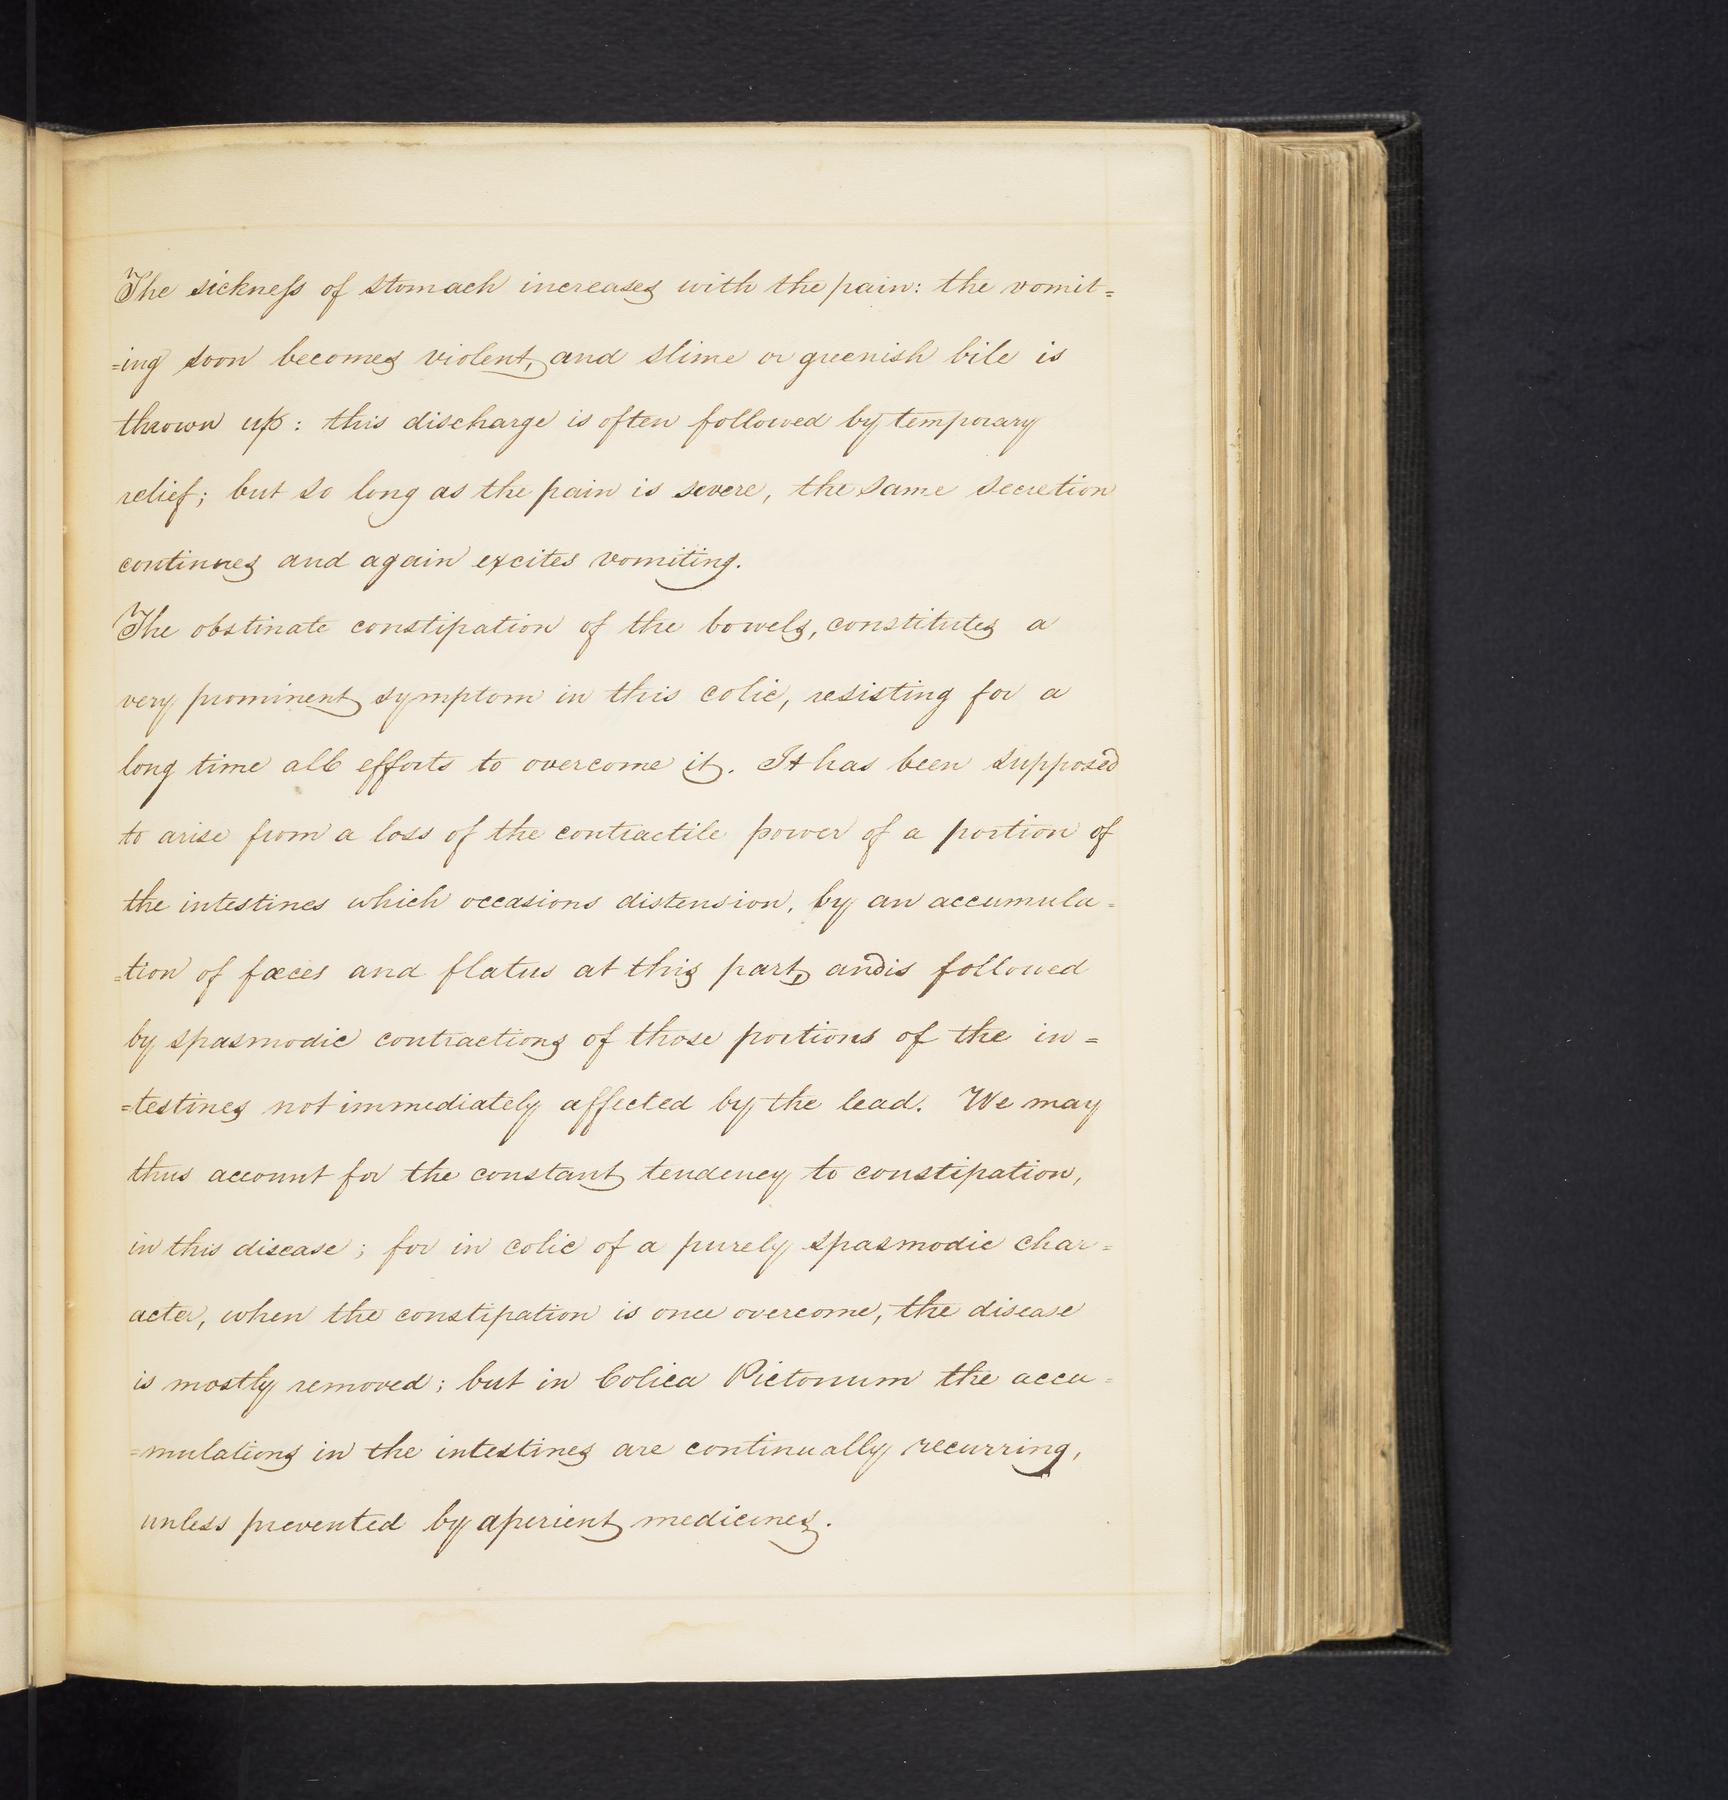 The sickneſs of stomach increases with the pain: the vomit=
=ing soon becomes violent, and slime or greenish bile is
thrown up: this discharge is often followed by temporary
relief; but so long as the pain is severe, the same secretion
continues and again excites vomiting.
The obstinate constipation of the bowels, constitutes a
very prominent symptom in this colic, resisting for a
long time all efforts to overcome it. It has been supposed
to arise from a loss of the contractile power of a portion of
the intestines which occasions distension, by an accumula=
=tion of fæces and flatus at this part, and is followed
by spasmodic contractions of those portions of the in=
=testines not immediately affected by the lead. We may
thus account for the constant tendency to constipation,
in this disease; for in colic of a purely spasmodic char=
acter, when the constipation is once overcome, the disease
is mostly removed; but in Colica Pictonum the accu=
=mulations in the intestines are continually recurring,
unless prevented by aperient medicines.